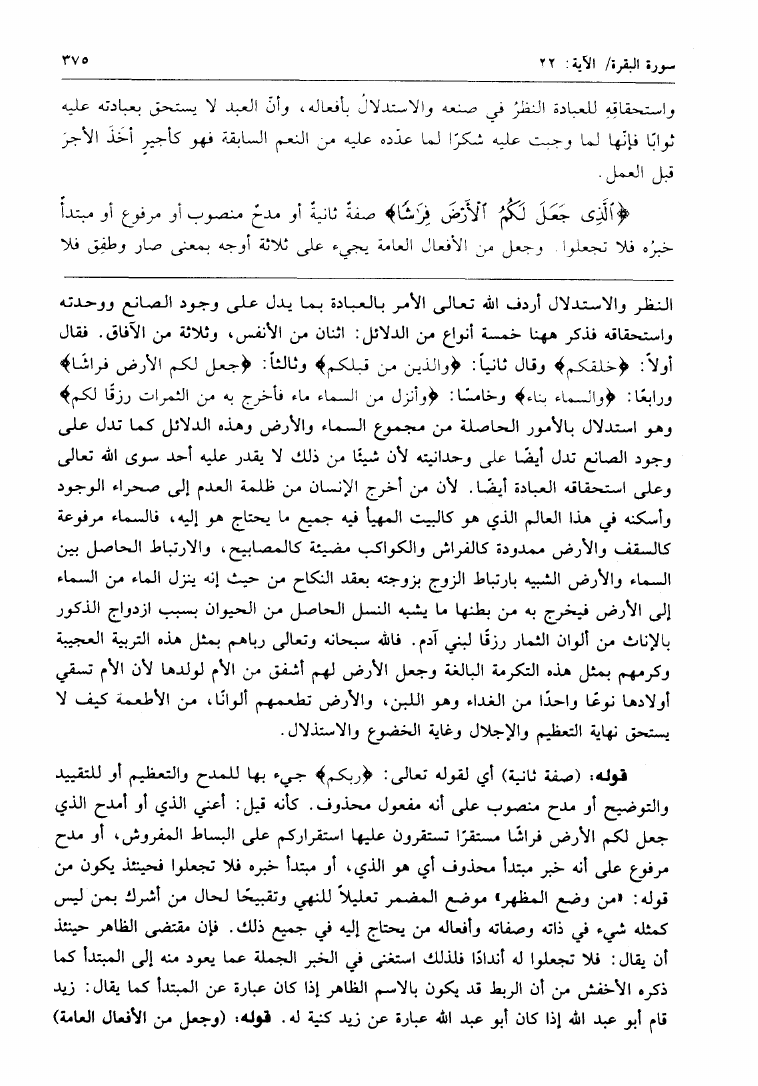 سورة البقرة/ الآية: ٢٢
٣٧٥
واستحقاقِهِ للعبادة النظرُ في صنعه والاستدلالُ بأفعاله، وأنّ العبد لا يستحق بعبادته عليه
ثوابًا فإنّها لما وجبت عليه شكرًا لما عدّده عليه من النعم السابقة فهو كأجيرٍ أخَذَ الأجرَ
قبل العمل.
﴿ٱلَّذِى جَعَلَ لَكُمُ ٱلْأَرْضَ فِرَٰشًا﴾ صفةٌ ثانيةٌ أو مدحٌ منصوب أو مرفوع أو مبتدأ
خبرُه فلا تجعلوا. وجعل من الأفعال العامة يجيء على ثلاثة أوجه بمعنى صار وطفِق فلا
النظر والاستدلال أردف الله تعالى الأمر بالعبادة بما يدل على وجود الصانع ووحدته
واستحقاقه فذكر ههنا خمسة أنواع من الدلائل: اثنان من الأنفس، وثلاثة من الآفاق. فقال
أولاً: ﴿خلقكم﴾ وقال ثانياً: ﴿والذين من قبلكم﴾ وثالثاً: ﴿جعل لكم الأرض فراشًا﴾
ورابعًا: ﴿والسماء بناء﴾ وخامسًا: ﴿وأنزل من السماء ماء فأخرج به من الثمرات رزقًا لكم﴾
وهو استدلال بالأمور الحاصلة من مجموع السماء والأرض وهذه الدلائل كما تدل على
وجود الصانع تدل أيضًا على وحدانيته لأن شيئًا من ذلك لا يقدر عليه أحد سوى الله تعالى
وعلى استحقاقه العبادة أيضًا. لأن من أخرج الإنسان من ظلمة العدم إلى صحراء الوجود
وأسكنه في هذا العالم الذي هو كالبيت المهيأ فيه جميع ما يحتاج هو إليه، فالسماء مرفوعة
كالسقف والأرض ممدودة كالفراش والكواكب مضيئة كالمصابيح، والارتباط الحاصل بين
السماء والأرض الشبيه بارتباط الزوج بزوجته بعقد النكاح من حيث إنه ينزل الماء من السماء
إلى الأرض فيخرج به من بطنها ما يشبه النسل الحاصل من الحيوان بسبب ازدواج الذكور
بالإناث من ألوان الثمار رزقًا لبني آدم. فالله سبحانه وتعالى رباهم بمثل هذه التربية العجيبة
وكرمهم بمثل هذه التكرمة البالغة وجعل الأرض لهم أشفق من الأم لولدها لأن الأم تسقي
أولادها نوعًا واحدًا من الغداء وهو اللبن، والأرض تطعمهم ألوانًا، من الأطعمة كيف لا
يستحق نهاية التعظيم والإجلال وغاية الخضوع والاستذلال.
قوله: (صفة ثانية) أي لقوله تعالى: ﴿ربكم﴾ جيء بها للمدح والتعظيم أو للتقييد
والتوضيح أو مدح منصوب على أنه مفعول محذوف. كأنه قيل: أعني الذي أو أمدح الذي
جعل لكم الأرض فراشًا مستقرًا تستقرون عليها استقراركم على البساط المفروش، أو مدح
مرفوع على أنه خبر مبتدأ محذوف أي هو الذي، أو مبتدأ خبره فلا تجعلوا فحينئذ يكون من
قوله: «من وضع المظهر» موضع المضمر تعليلاً للنهي وتقبيحًا لحال من أشرك بمن ليس
كمثله شيء في ذاته وصفاته وأفعاله من يحتاج إليه في جميع ذلك. فإن مقتضى الظاهر حينئذ
أن يقال: فلا تجعلوا له أندادًا فلذلك استغنى في الخبر الجملة عما يعود منه إلى المبتدأ كما
ذكره الأخفش من أن الربط قد يكون بالاسم الظاهر إذا كان عبارة عن المبتدأ كما يقال: زيد
قام أبو عبد الله إذا كان أبو عبد الله عبارة عن زيد كنية له. قوله: (وجعل من الأفعال العامة)